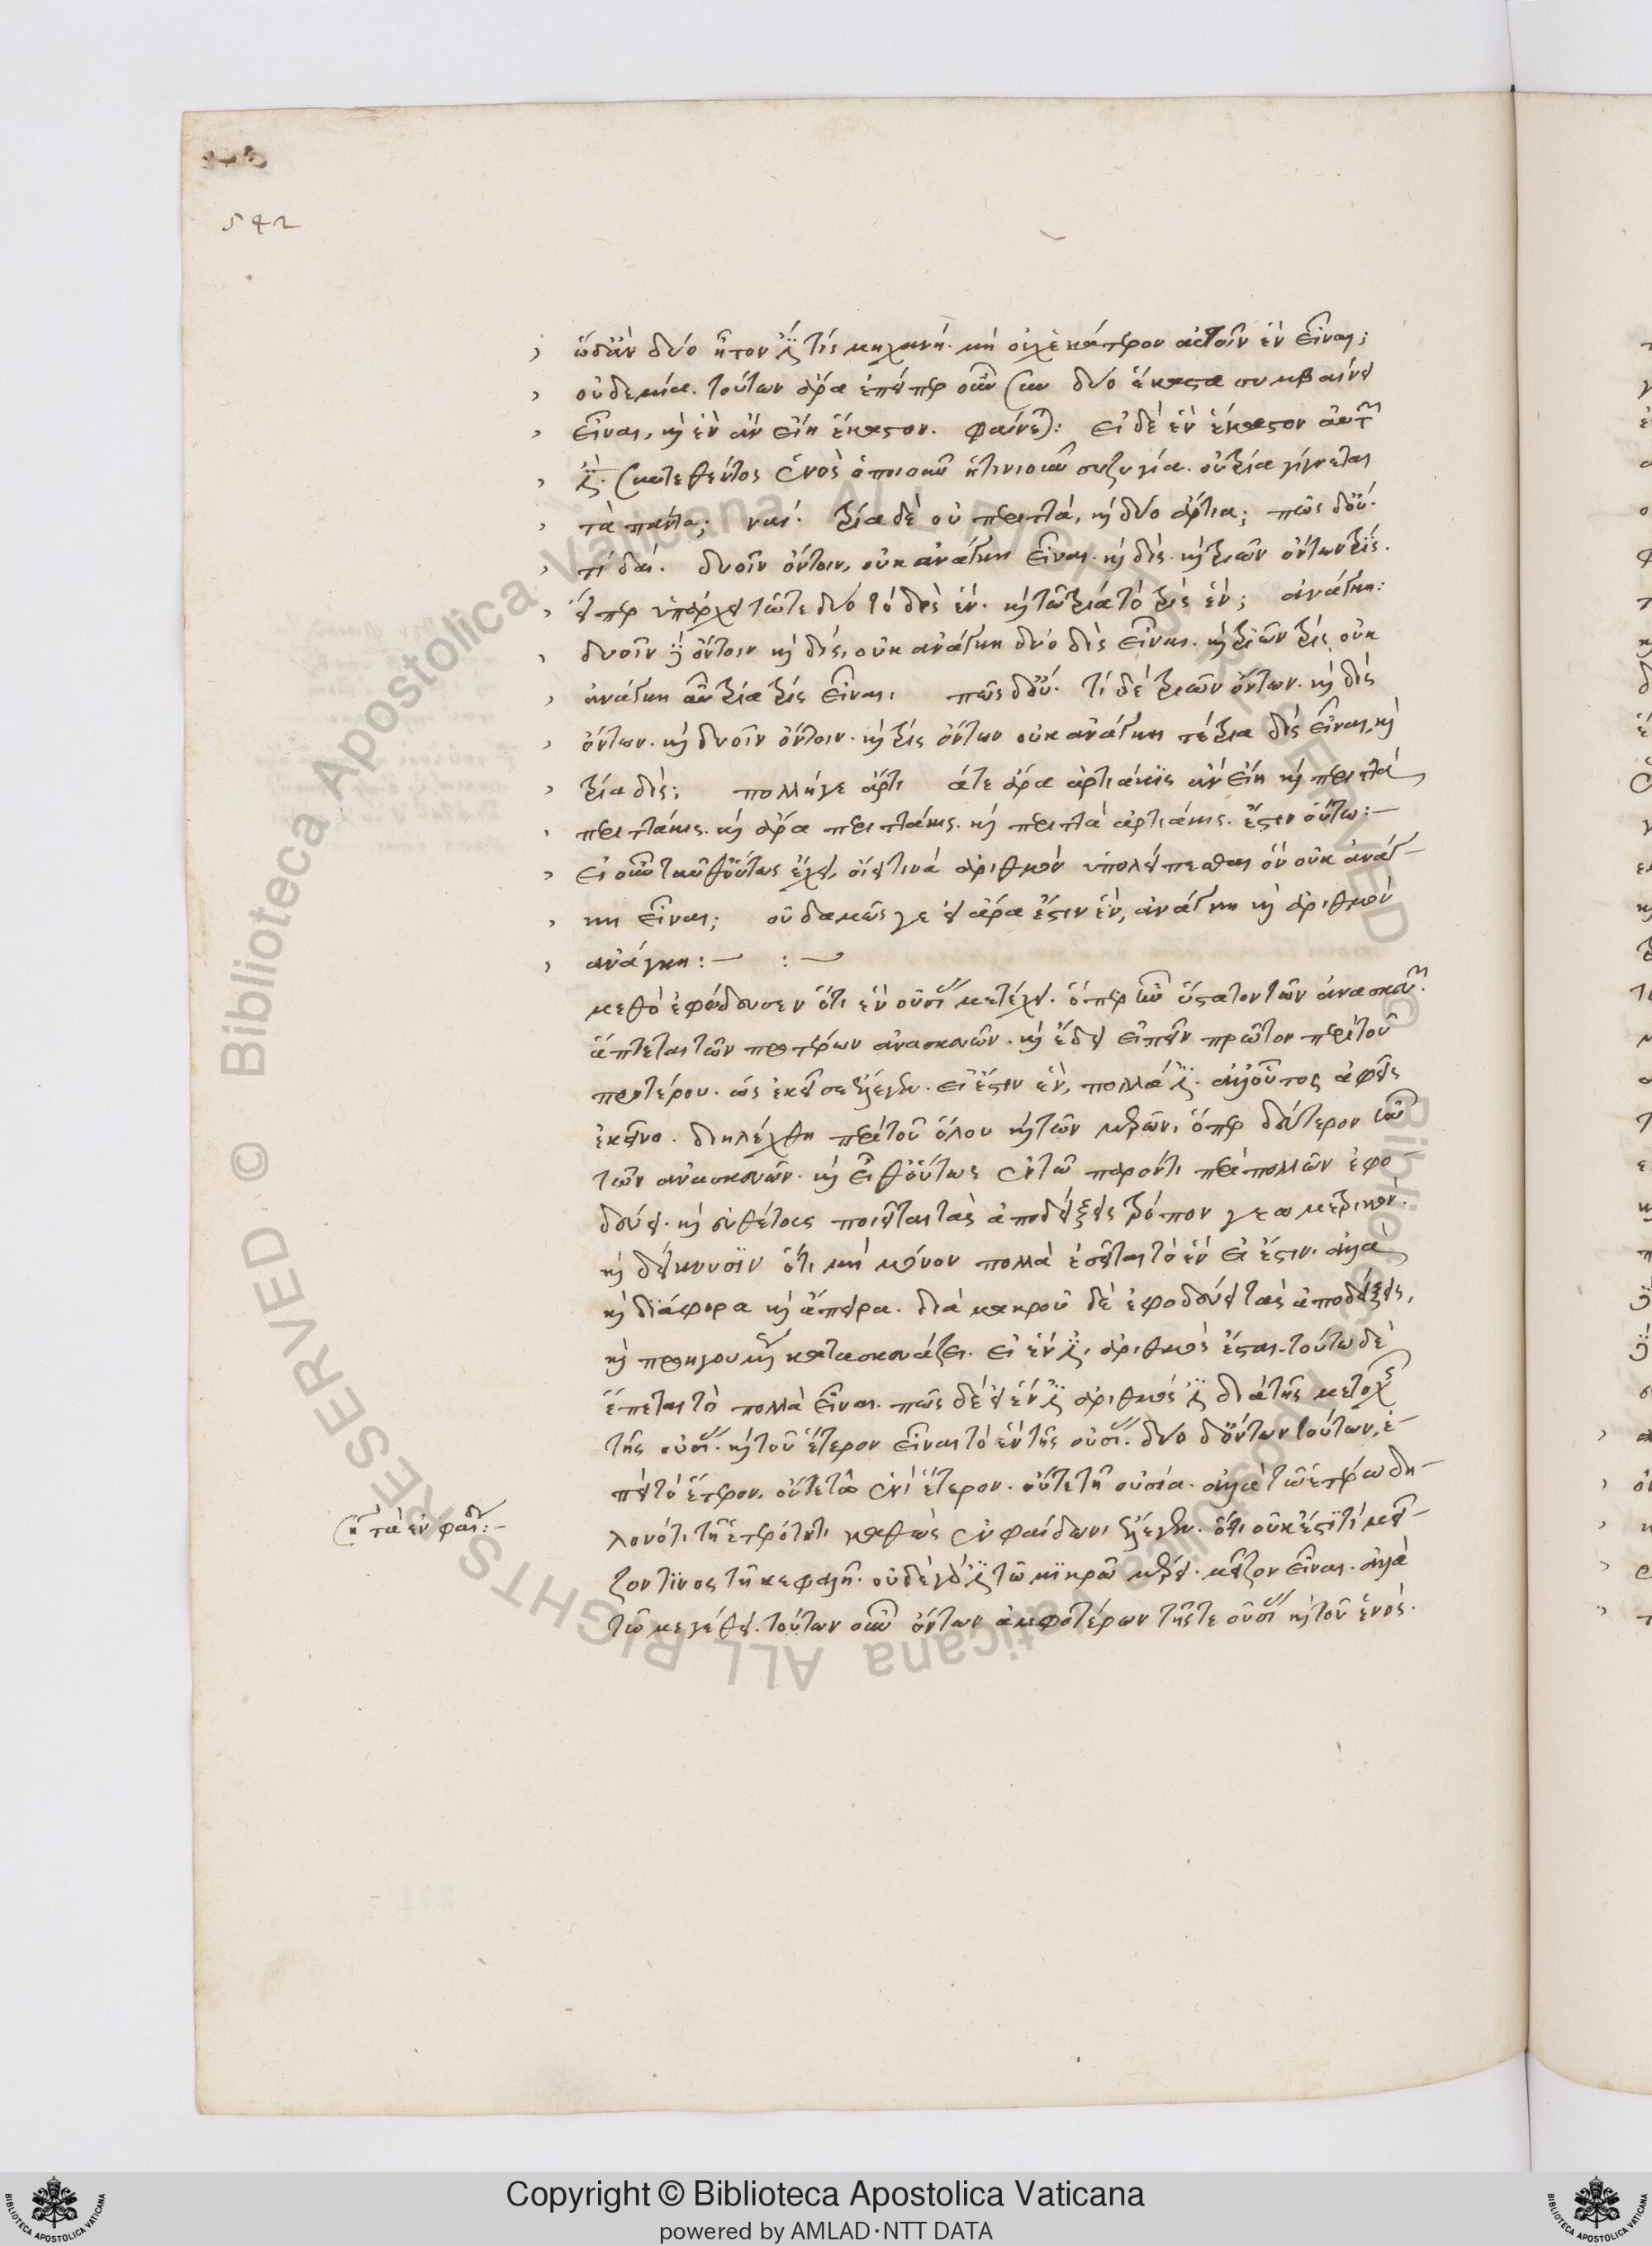 542
ὣ δ' ἂν δύο ἦτον ἔστι τίς μηχανὴ μὴ οὐχ ἑκάτερον αὐτοῖν ἓν εἶναι;
οὐδεμία. τούτων ἄρα ἐπείπερ οὖν σὺν δύο ἕκαστα συμβαίνει
εἶναι, καὶ ἓν ἂν εἴη ἕκαστον. φαίνεται: εἰ δὲ ἓν ἕκαστον αὐτῶν
ἐστι. συντεθέντος ἑνὸς ὁποιουοῦν ᾑτινιοῦν συζυγία. οὐ τρία γίγνεται
τὰ πάντα; ναί. τρία δὲ οὐ περιττά, καὶ δύο ἄρτια; πῶς δ' οὔ.
τί δαί. δυοῖν ὄντοιν, οὐκ ἀνάγκη εἶναι καὶ δίς. καὶ τριῶν ὄντων τρίς.
εἴπερ ὑπάρχει τῶ τε δύο τὸ δὶς ἕν. καὶ τῶ τρία τὸ τρὶς ἕν; ἀνάγκη:
δυοῖν δὲ ὄντοιν καὶ δίς, οὐκ ἀνάγκη δύο δὶς εἶναι. καὶ τριῶν τρίς, οὐκ
ἀνάγκη αὖ τρία τρὶς εἶναι. πῶς δ' οὔ. τί δὲ τριῶν ὄντων. καὶ δὶς
ὄντων. καὶ δυοῖν ὄντοιν. καὶ τρὶς ὄντων οὐκ ἀνάγκη τε τρία δὶς εἶναι, καὶ
τρία δίς; πολλή γε ἄρτι ατε ἄρα ἀρτιάκις ἂν εἴη καὶ περιττὰ
περιττάκις. καὶ ἄρα περιττάκις. καὶ περιττὰ ἀρτιάκις. ἔστιν οὕτω:—
Εἰ οὖν ταῦθ' οὕτως ἔχει, οἴει τινὰ ἀριθμὸν ὑπολείπεσθαι ὃν οὐκ ἀνάγ-
κη εἶναι; οὐδαμῶς γε εἰ ἄρα ἔστιν ἕν, ἀνάγκη καὶ ἀριθμὸν
ἀνάγκη:— :—
μεθὸ ἐφώδευσεν ὅτι ἓν οὐσίας μετέχει. ὅπερ ἦν ὕστατον τῶν ἀνασκευῶν.
ἅπτεται τῶν προτέρων ἀνασκευῶν. καὶ ἔδει εἰπεῖν πρῶτον περὶ τοῦ
προτέρου. ὡς ἐκεῖσε ἐλέγετο. εἰ ἔστιν ἕν, πολλά ἐστι. ἀλλ' οὗτος ἀφεὶς
ἐκεῖνο. διηλέχθη περὶ τοῦ ὅλου καὶ τῶν μερῶν, ὅπερ δεύτερον ἦν
τῶν ἀνασκευῶν. καὶ εἶθ' οὕτως ἐν τῶ παρόντι περὶ πολλῶν ἐφο-
δεύει. καὶ συνθέτους ποιεῖται τὰς ἀποδείξεις τρόπον γεωμετρικόν.
καὶ δείκνυσιν ὅτι μὴ μόνον πολλὰ ἐσεῖται τὸ ἓν εἰ ἔστιν. ἀλλὰ
καὶ διάφορα καὶ ἄπειρα. διὰ μακροῦ δὲ ἐφοδεύει τὰς ἀποδείξεις,
καὶ προηγουμένως κατασκευάζει. εἰ ἕν ἐστι, ἀριθμὸς ἔσται. τούτω δὲ
ἕπεται τὸ πολλὰ εἶναι. πῶς δὲ εἰ ἕν ἐστι ἀριθμός ἐστι διὰ τῆς μετοχῆς
τῆς οὐσίας. καὶ τοῦ ἕτερον εἶναι τὸ ἓν τῆς οὐσίας. δύο δ' ὄντων τούτων, ἐ-
πεὶ τὸ ἕτερον, οὔτε τῶ ἑνὶ ἕτερον. οὔτε τῆ οὐσία. ἀλλὰ τῶ ἑτέρω δη-
λονότι τῆ ἑτερότητι καθὼς ἐν φαίδωνι ἐλέγετο. ὅτι οὐκ ἔστι τι μεῖ-
ζον τινος τῆ κεφαλῆ. οὐδὲ γάρ ἐστι τῶ μικρῶ μέρει μεῖζον εἶναι. ἀλλὰ
τῶ μεγέθει. τούτων οὖν ὄντων ἀμφοτέρων τῆς τε οὐσίας καὶ τοῦ ἑνός.
τὰ ἐν φαίδ:—